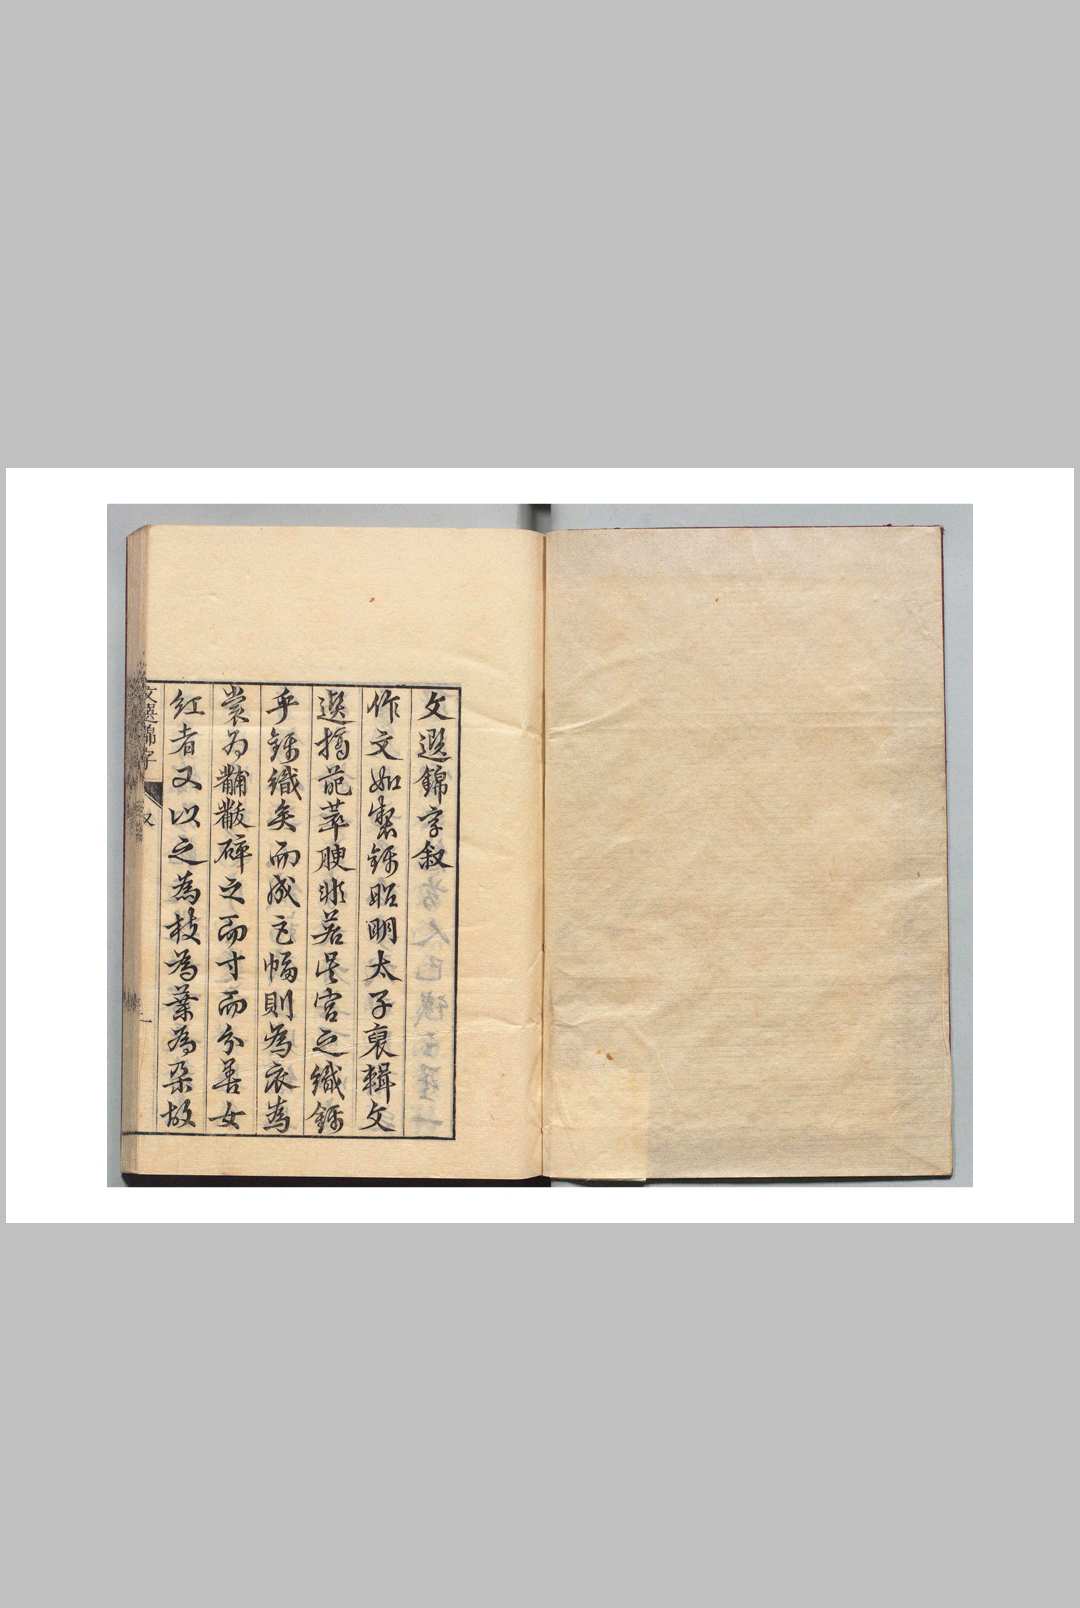 文選錦字叙
作文如製錦昭明太子裒輯文
選摛葩萃腴非若後宮之織錦
乎錦織矣而成匹幅則為衣為
裳為黼黻碎之而寸而分善女
紅者又以之為枝為葉為朵故
文選錦字
叙
一